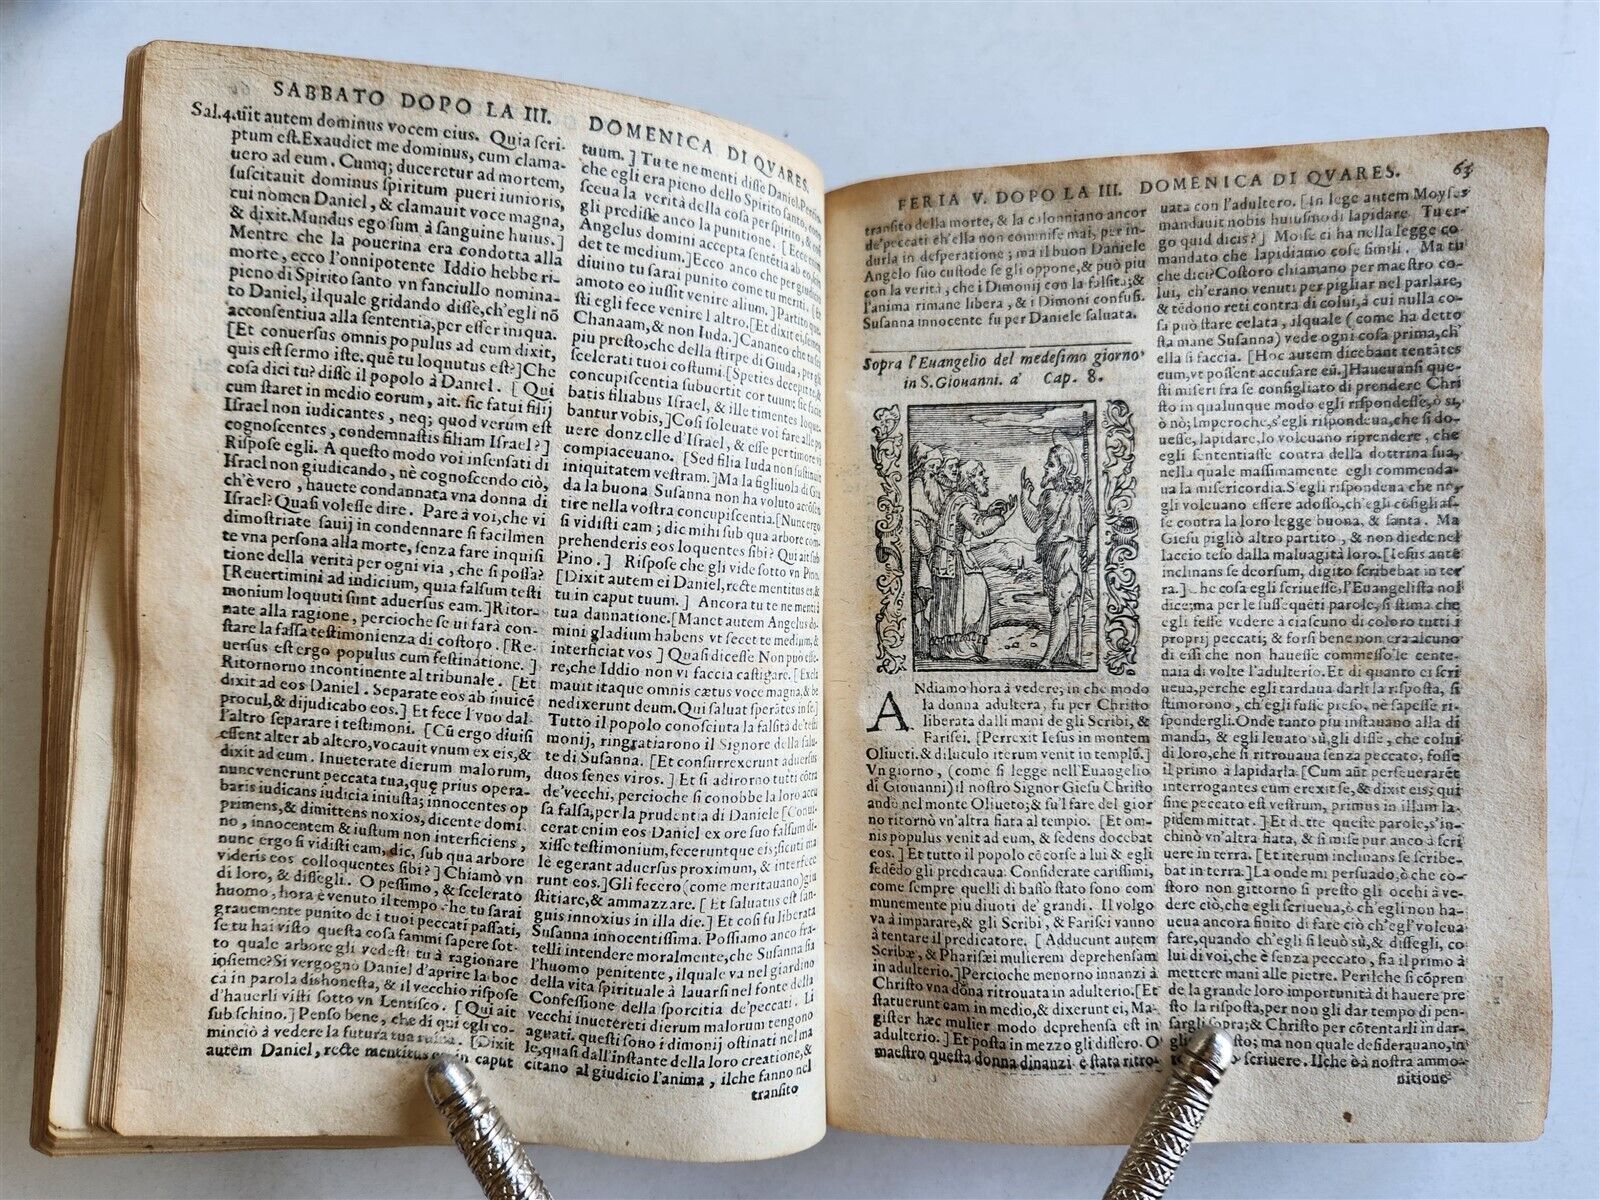 SABBATO DOPO LA III. DOMENICA DI QVARES.
Sal.4. uit autem dominus vocem eius. Quia scri-
ptum est. Exaudiet me dominus, cum clama-
uero ad eum. Cumq; duceretur ad mortem,
suscitauit dominus spiritum pueri iunioris,
cui nomen Daniel, & clamauit voce magna,
& dixit. Mundus ego sum à sanguine huius.]
Mentre che la pouerina era condotta alla
morte, ecco l'onnipotente Iddio hebbe ri-
pieno di Spirito santo vn fanciullo nomina-
to Daniel, il quale gridando disse, ch'egli nõ
acconsentiua alla sententia, per esser iniqua.
[Et conuersus omnis populus ad eum dixit,
quis est sermo iste, quē tu loquutus est?] Che
cosa dici tu? disse il popolo à Daniel. [Qui
cum staret in medio eorum, ait. sic fatui filij
Israel non iudicantes, neq; quod verum est
cognoscentes, condemnastis filiam Israel?]
Rispose egli. A questo modo voi insensati di
Israel non giudicando, nè cognoscendo ciò,
ch'è vero, hauete condannata vna donna di
Israel? Quasi volesse dire. Pare à voi, che vi
dimostriate sauij in condennare si facilmen
te vna persona alla morte, senza fare inquisi
tione della verità per ogni via, che si possa?
[Reuertimini ad iudicium, quia falsum testi
monium loquuti sunt aduersus eam.] Ritor-
nate alla ragione, percioche se ui farà con-
stare la falsa testimonienza di costoro. [Re-
uersus est ergo populus cum festinatione.]
Ritornorno incontinente al tribunale. [Et
dixit ad eos Daniel. Separate eos ab inuicē
procul, & dijudicabo eos.] Et fece l'vno dal-
l'altro separare i testimoni. [Cū ergo diuisi
essent alter ab altero, vocauit vnum ex eis, &
dixit ad eum. Inueterate dierum malorum,
nunc venerunt peccata tua, quę prius opera-
baris iudicans iudicia iniusta; innocentes op
primens, & dimittens noxios, dicente domi-
no, innocentem & iustum non interficiens,
nunc ergo si vidisti eam, dic, sub qua arbore
videris eos colloquentes sibi?] Chiamò vn
di loro, & dissegli. O pessimo, & scelerato
huomo, hora è venuto il tempo che tu sarai
grauemente punito de i tuoi peccati passati,
se tu hai visto questa cosa fammi sapere sot-
to quale arbore gli vedesti tu à ragionare
insieme? Si vergognò Daniel d'aprire la boc
ca in parola dishonesta, & il vecchio rispose
d'hauerli visti sotto vn Lentisco. [Qui ait
sub schino.] Penso bene, che di qui egli co-
minciò à vedere la futura tua [Dixit
autem Daniel, recte mentitus in caput
tuum.] Tu te ne menti disse Daniel.
che egli era pieno dello Spirito santo,
sceua la verità della cosa per spirito, &
gli predisse anco la punitione. [Ecce enim
Angelus domini accepta sententia ab eo,
det te medium.] Ecco anco che per giudicio
diuino tu sarai punito come tu meriti. [Et
amoto eo iussit venire alium.] Partito que-
sti egli fece venire l'altro. [Et dixit ei, semen
Chanaam, & non Iuda.] Cananeo che tu sei
piu presto, che della stirpe di Giuda, per gli
scelerati tuoi costumi. [Species decepit te, &
concupiscentia subuertit cor tuum; sic facie
batis filiabus Israel, & illę timentes loque-
bantur vobis,] Cosi soleuate voi fare alle po
uere donzelle d'Israel, & esse per timore vi
compiaceuano. [Sed filia Iuda non sustinuit
iniquitatem vestram.] Ma la figliuola di Giu
da la buona Susanna non ha voluto acconsen
tire nella vostra concupiscentia. [Nunc ergo
si vidisti eam; dic mihi sub qua arbore com-
prehenderis eos loquentes sibi? Qui ait sub
Pino.] Rispose che gli vide sotto vn Pino.
[Dixit autem ei Daniel, recte mentitus es, &
tu in caput tuum.] Ancora tu te ne menti à
tua dannatione. [Manet autem Angelus do-
mini gladium habens vt secet te medium, &
interficiat vos] Quasi dicesse Non può esse-
re, che Iddio non vi faccia castigare. [Excla
mauit itaque omnis cœtus voce magna, & be
nedixerunt deum. Qui saluat sperātes in se.]
Tutto il popolo conosciuta la falsità de' testi
monij, ringratiarono il Signore della salu-
te di Susanna. [Et consurrexerunt aduersus
duos senes viros.] Et si adirorno tutti cōtra
de'vecchi, percioche si conobbe la loro accu
sa falsa, per la prudentia di Daniele [Conui-
cerat enim eos Daniel ex ore suo falsum di-
xisse testimonium, feceruntque eis; sicuti ma
lè egerant aduersus proximum, & interfece
runt eos.] Gli fecero (come meritauano) giu
stitiare, & ammazzare. [Et saluatus est san-
guis innoxius in illa die.] Et cosi fu liberata
Susanna innocentissima. Possiamo anco fra-
telli intendere moralmente, che Susanna sia
l'huomo penitente, il quale va nel giardino
della vita spirituale à lauarsi nel fonte della
Confessione della sporcitia de'peccati. Li
vecchi inueterēti dierum malorum tengono
aguati. questi sono i dimonij ostinati nel ma
le, quasi dall'instante della loro creatione, &
citano al giudicio l'anima, ilche fanno nel
transito
FERIA V. DOPO LA III. DOMENICA DI QVARES. 63
transito della morte, & la calonniano ancor
de'peccati ch'ella non commise mai, per in-
durla in desperatione; ma il buon Daniele
Angelo suo custode se gli oppone, & può piu
con la verità, che i Dimonij con la falsità; &
l'anima rimane libera, & i Dimoni confusi.
Susanna innocente fu per Daniele saluata.
Sopra l'Euangelio del medesimo giorno
in S. Giouanni. a' Cap. 8.
ANdiamo hora à vedere, in che modo
la donna adultera, fu per Christo
liberata dalli mani de gli Scribi, &
Farisei. [Perrexit Iesus in montem
Oliueti. & diluculo iterum venit in templū.]
Vn giorno, (come si legge nell'Euangelio
di Giouanni) il nostro Signor Giesu Christo
andò nel monte Oliueto; & su'l fare del gior
no ritornò vn'altra fiata al tempio. [Et om-
nis populus venit ad eum, & sedens docebat
eos.] Et tutto il popolo cōcorse a lui & egli
sedēdo gli predicaua. Considerate carissimi,
come sempre quelli di basso stato sono com
munemente piu diuoti de' grandi. Il volgo
và à imparare, & gli Scribi, & Farisei vanno
à tentare il predicatore. [Adducunt autem
Scribæ, & Pharisæi mulierem deprehensam
in adulterio.] Percioche menorno innanzi à
Christo vna dōna ritrouata in adulterio. [Et
statuerunt eam in medio, & dixerunt ei, Ma-
gister hæc mulier modo deprehensa est in
adulterio.] Et posta in mezo gli dissero. O
maestro questa donna dinanzi è stata ritro-
uata con l'adultero. [In lege autem Moyses
mandauit nobis huiusmodi lapidare. Tu er-
go quid dicis?] Moise ci ha nella legge co-
mandato che lapidiamo cose simili. Ma tu
che dici? Costoro chiamano per maestro co-
lui, ch'erano venuti per pigliar nel parlare,
& tēdono reti contra di colui, à cui nulla co-
sa può stare celata, ilquale (come ha detto
sta mane Susanna) vede ogni cosa prima, ch'
ella si faccia. [Hoc autem dicebant tentātes
eum, vt possent accusare eū.] Haueuansi que-
sti miseri fra se consigliato di prendere Chri
sto in qualunque modo egli rispondesse, ò si,
ò nò; Imperoche, s'egli rispondeua, che si do-
uesse, lapidare, lo voleuano riprendere, che
egli sententiasse contra della dottrina sua,
nella quale massimamente egli commenda-
ua la misericordia. S'egli rispondeua che nò,
gli voleuano essere adosso, ch'egli cōsigliaf-
se contra la loro legge buona, & santa. Ma
Giesu pigliò altro partito, & non diede nel
laccio teso dalla maluagità loro. [Iesus autē
inclinans se deorsum, digito scribebat in ter
ra.] che cosa egli scriuesse, l'Euangelista nol
dice; ma per le sussequēti parole, si stima che
egli fesse vedere à ciascuno di coloro tutti i
proprij peccati; & forsi bene non era alcuno
di essi che non hauesse commesso le cente-
naia di volte l'adulterio. Et di quanto ei scri
ueua, perche egli tardaua darli la risposta, si
stimorono, ch'egli fusse preso, nè sapesse ri-
spondergli. Onde tanto piu instauano alla di
manda, & egli leuato sù, gli disse, che colui
di loro, che si ritrouaua senza peccato, fosse
il primo à lapidarla. [Cum aūt perseuerarēt
interrogantes eum erexit se, & dixit eis; qui
sine peccato est vestrum, primus in illam la-
pidem mittat.] Et dette queste parole, s'in-
chinò vn'altra fiata, & si mise pur anco à scri
uere in terra. [Et iterum inclinans se scribe-
bat in terra.] La onde mi persuado, ò che co-
storo non gittorno si presto gli occhi à ve-
dere ciò, che egli scriueua, ò ch'egli non ha-
ueua ancora finito di fare ciò ch'egli voleua
fare, quando ch'egli si leuò sù, & dissegli, co
lui di voi, che è senza peccato, sia il primo à
mettere mani alle pietre. Perilche si cōpren
de la grande loro importunità di hauere pre
sto la risposta, per non gli dar tempo di pen-
sargli sopra; & Christo per cōtentarli in dar-
gli sto; ma non quale desiderauano, in
scriuere. Ilche ò à nostra ammo-
nitione